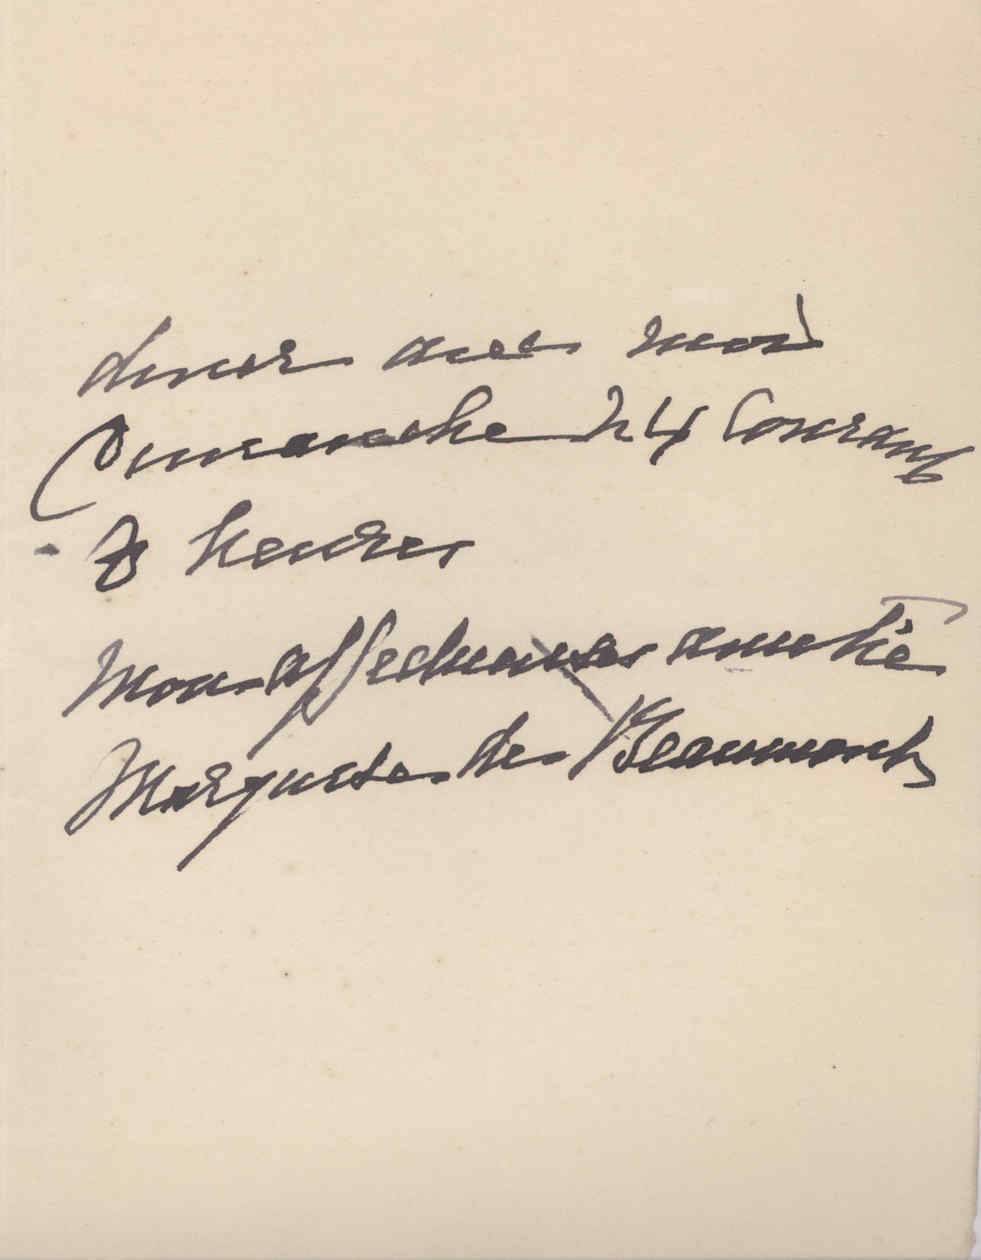 diner avec moi
Dimanche 24 Courant
8 heures
Mon affectueuse amitié
Marquise de Beaumont